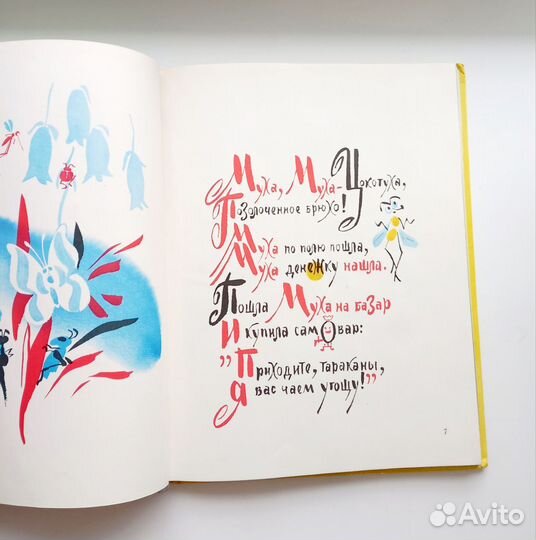 Муха, Муха-Цокотуха,
Позолоченное брюхо!
Муха по полю пошла,
Муха денежку нашла.
Пошла Муха на базар
И купила самовар:
„Приходите, тараканы,
Я вас чаем угощу!"
7
Avito